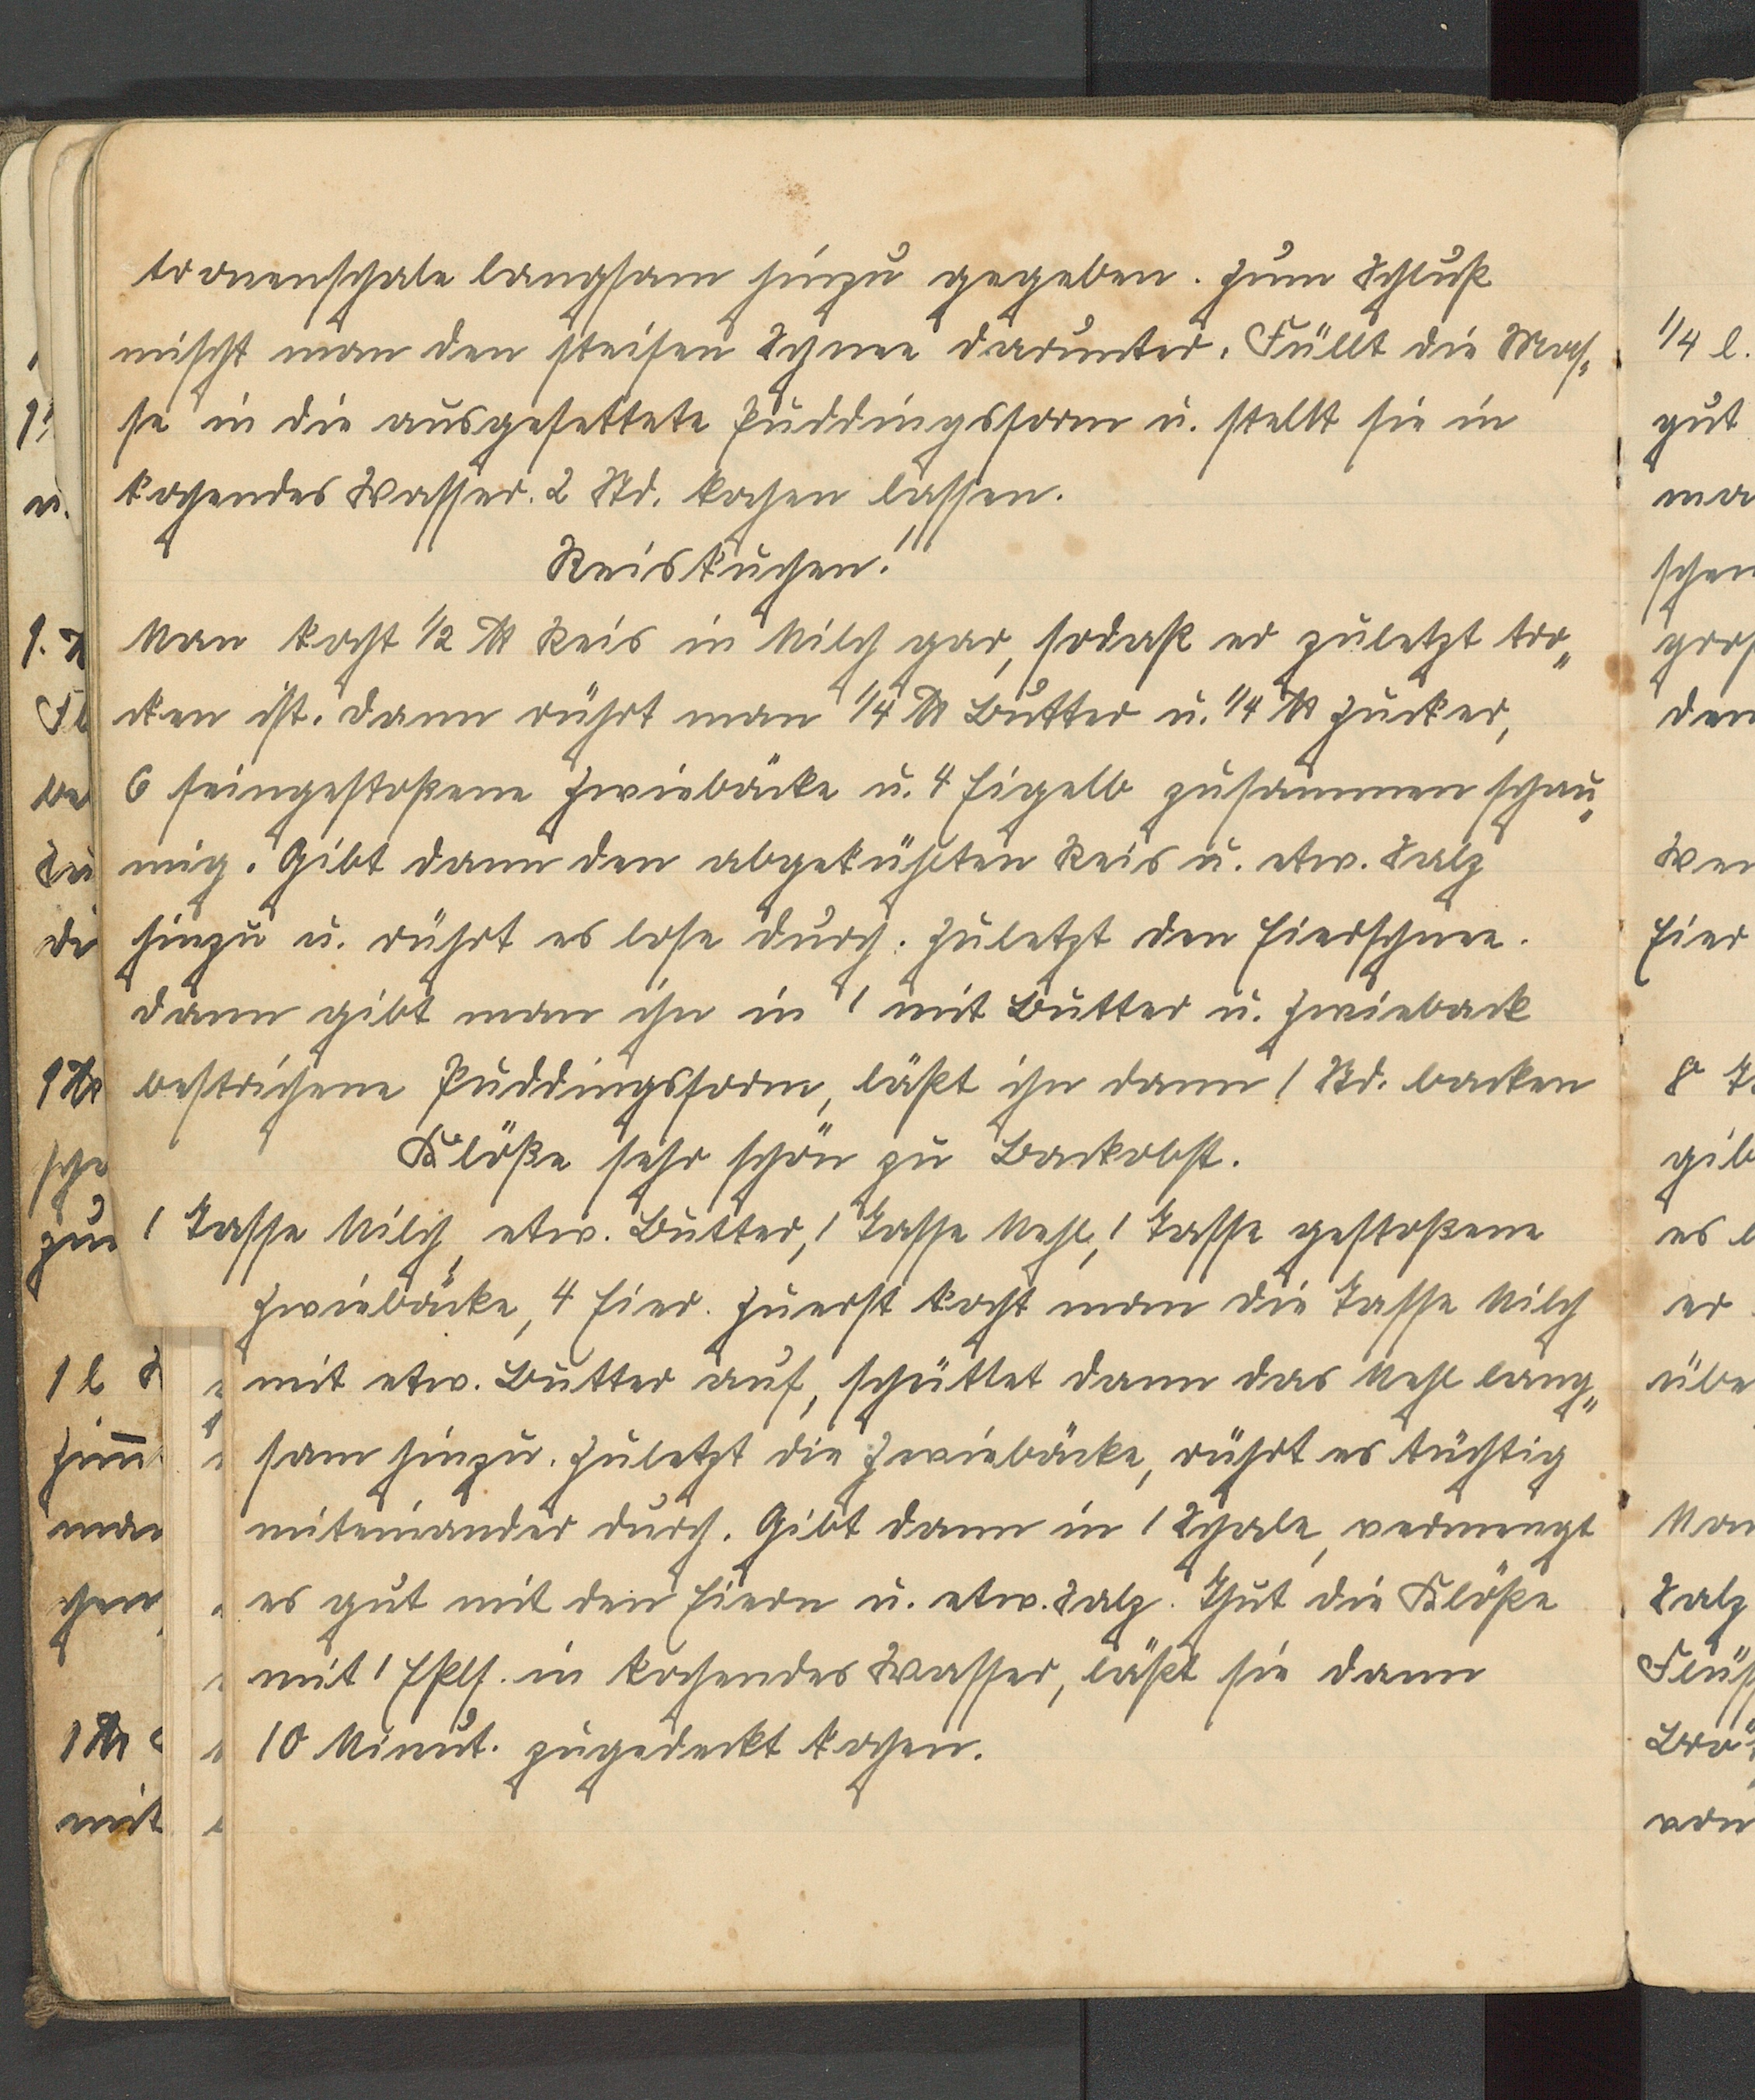 tronenschale langsam hinzu gegeben. Zum Schluß
mischt man den steifen Schnee darunter. Füllt die Mas-
se in die ausgefettete Puddingsform u. stellt sie in
kochendes Wasser. 2 Std. kochen lassen.
Reiskuchen.
Man kocht 1/2 ℔ Reis in Milch gar, sodaß er zuletzt tro-
cken ist. Dann rührt man 1/4 ℔ Butter u. 1/4 ℔ Zucker,
6 feingestoßene Zwiebäcke u. 4 Eigelb zusammen schau-
mig. Gibt dann den abgekühlten Reis u. etw. Salz
hinzu u. rührt es lose durch. Zuletzt den Eierschnee.
Dann gibt man ihn in 1 mit Butter u. Zwieback
bestrichene Puddingsform, läßt ihn dann 1 Std. backen
Klöße sehr schön zu Backobst.
1 Tasse Milch, etw. Butter, 1 Tasse Mehl, 1 Tasse gestoßene
Zwiebäcke, 4 Eier. Zuerst kocht man die Tasse Milch
mit etw. Butter auf, schüttet dann das Mehl lang-
sam hinzu. Zuletzt die Zwiebäcke, rührt es tüchtig
miteinander durch. Gibt dann in 1 Schale, vermengt
es gut mit den Eiern u. etw. Salz. Thut die Klöße
mit 1 Eßlf. in kochendes Wasser, läßt sie dann
10 Minut. zugedeckt kochen.
1/4 l.
gut
ma
schen
groß
den
Eier
gib
es
er
übe
Man
Salz